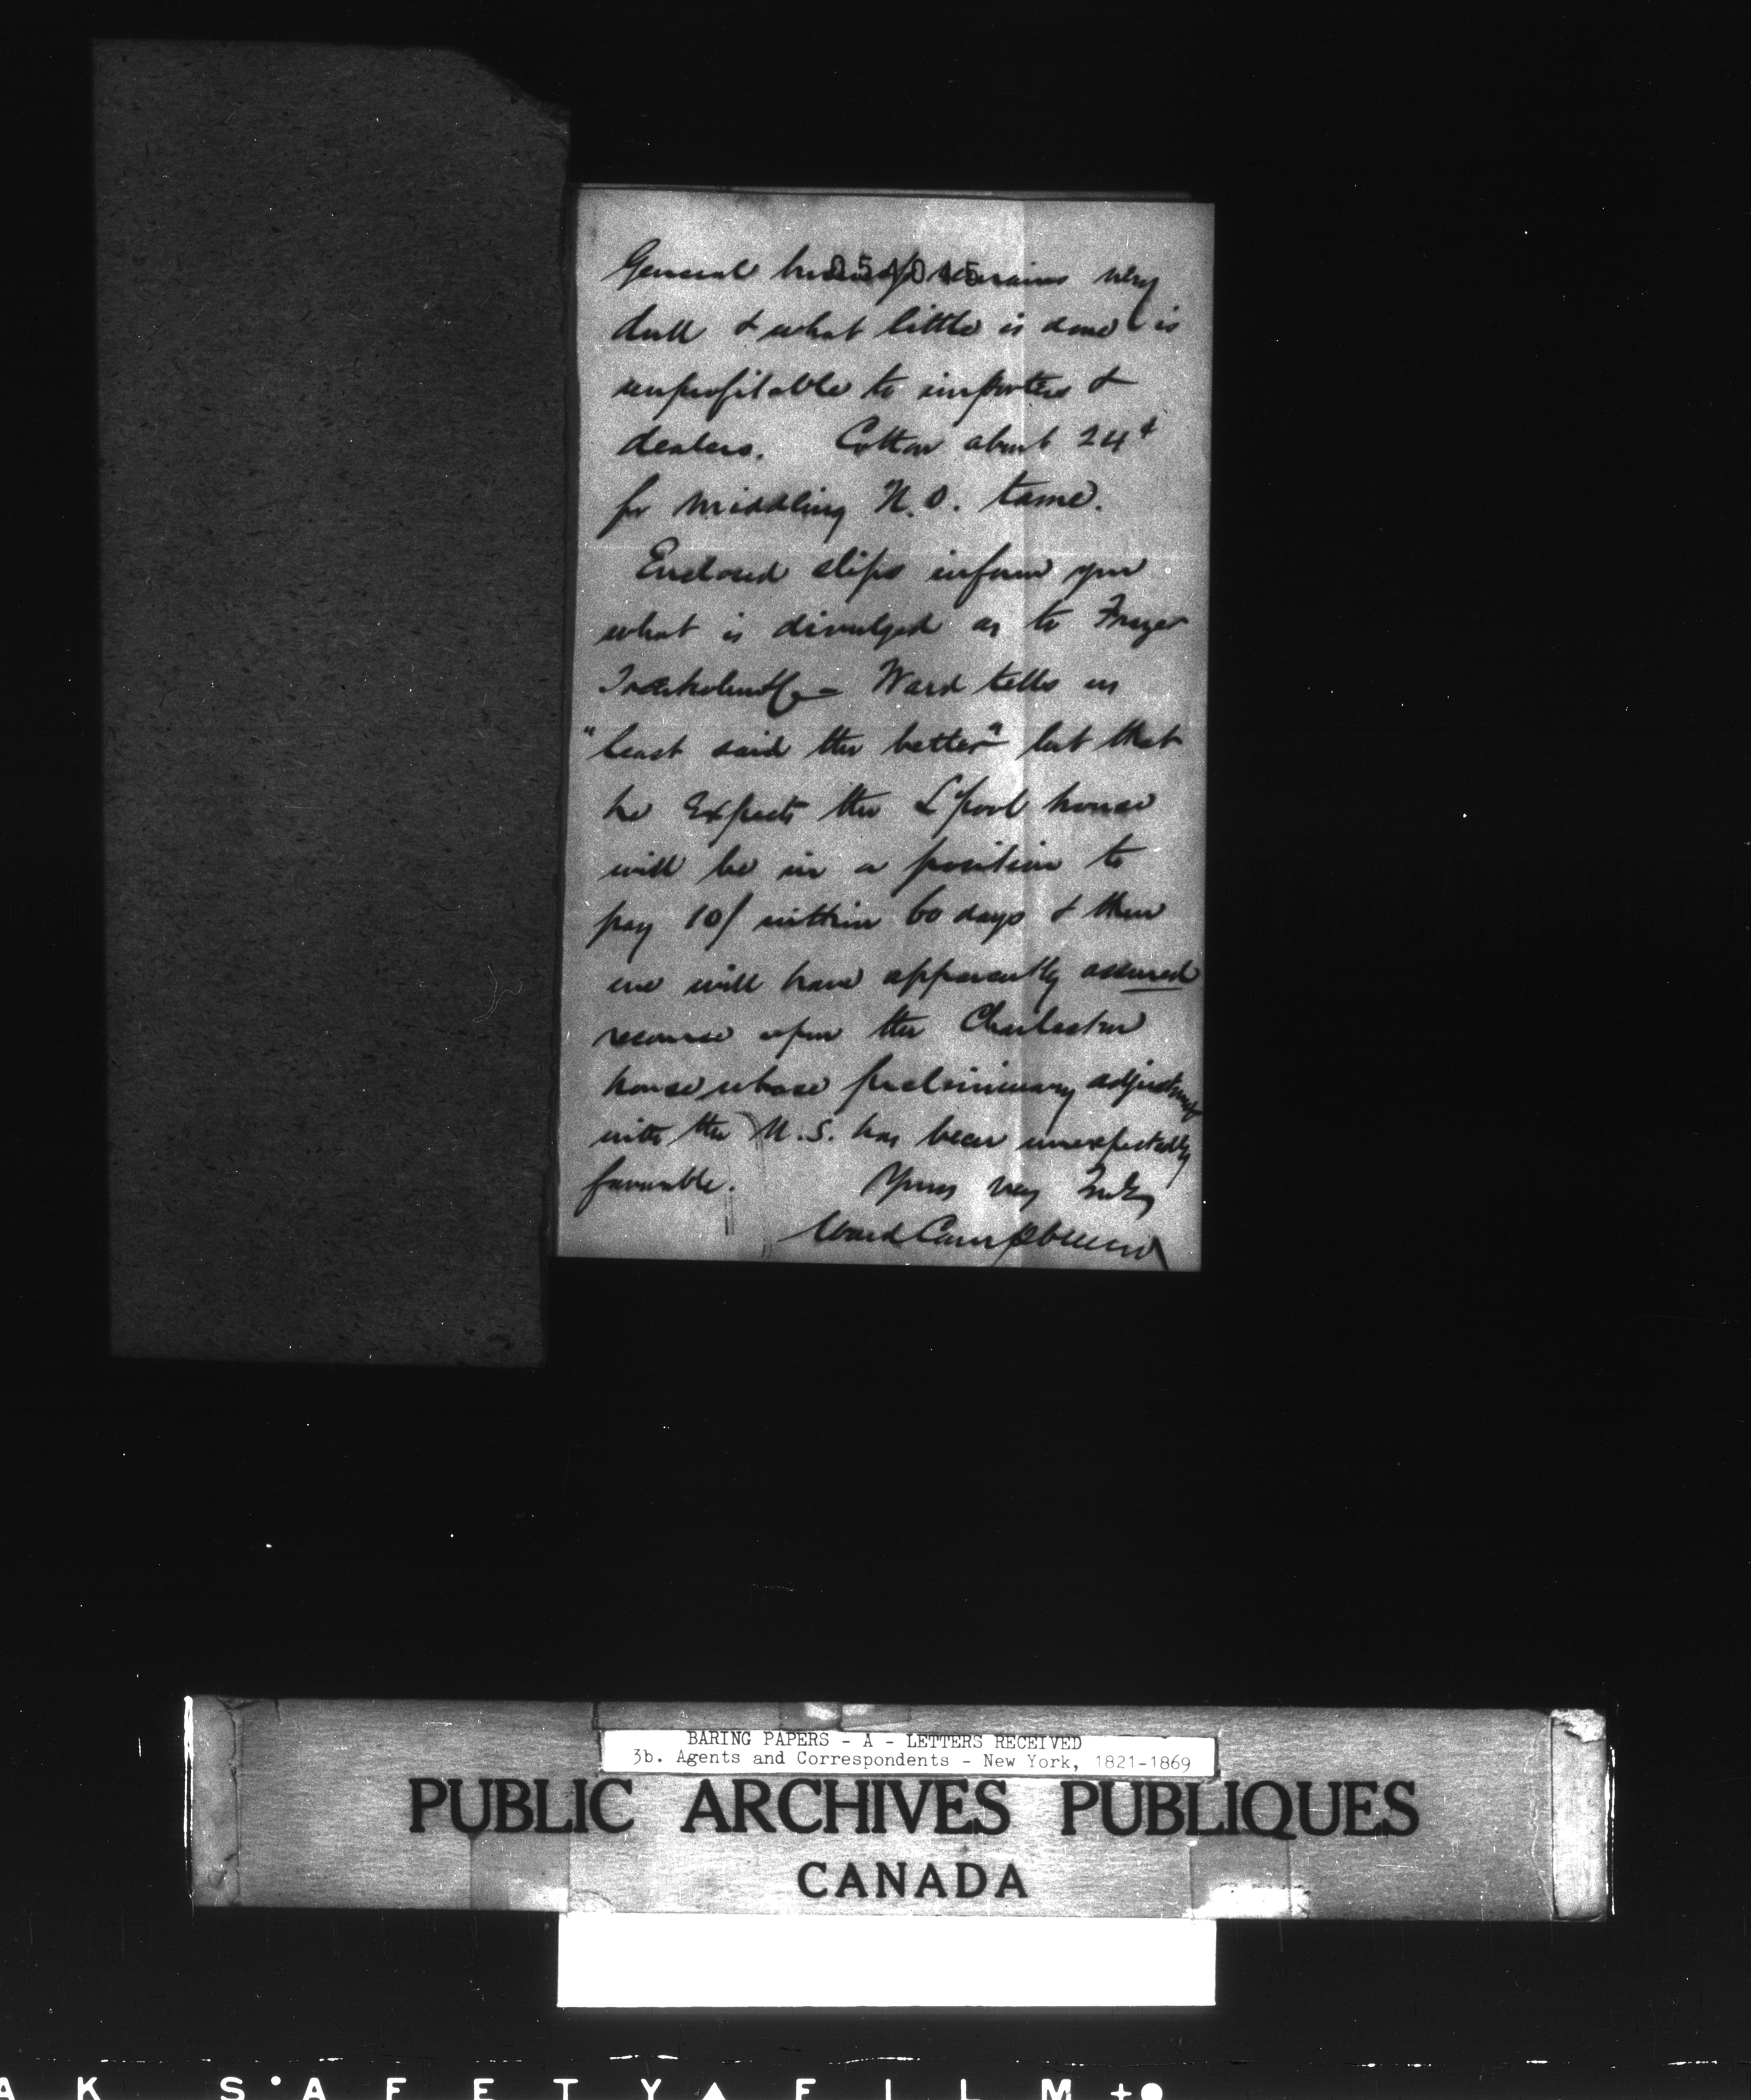 General business remains very
054045
dull & what little is done is
unprofitable to importers &
dealers. Cotton about 24¢
for middling N.O. tame.
Enclosed slips inform you
what is divulged as to Frazer
Trenholm & Co - Ward tells us
"least said the better" but that
he expects the L'pool house
will be in a position to
pay 10/ within 60 days & then
we will have apparently assured
recourse upon the Charleston
house whose preliminary adjustment
with the U.S. has been unexpectedly
favorable. Yours very truly
Ward Campbell
BARING PAPERS - A - LETTERS RECEIVED
3b. Agents and Correspondents - New York, 1821-1869
PUBLIC ARCHIVES PUBLIQUES
CANADA
AK S•AFETY▲FILM+●